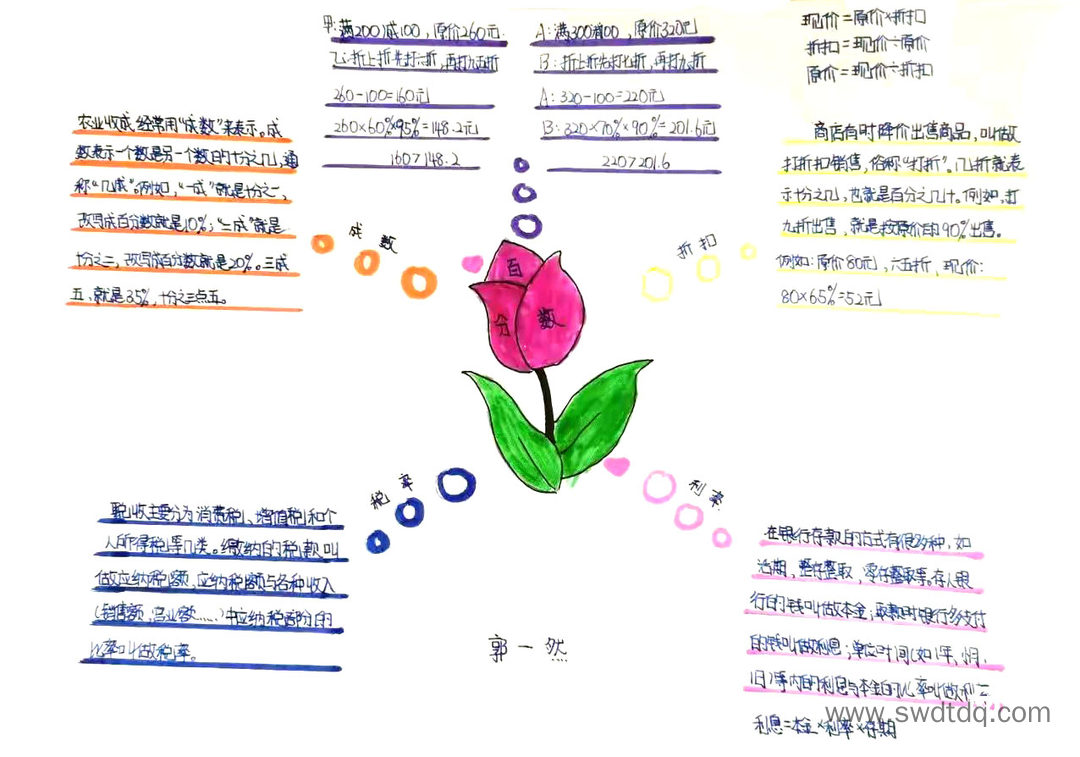 甲:满200减100，原价260元.
乙:折上折先打六折，再打九五折
260-100=160元
260×60%×95%=148.2元
160>148.2
A:满300减100，原价320元
B:折上折先打七折，再打九折
A:320-100=220元
B:320×70%×90%=201.6元
220>201.6
现价=原价×折扣
折扣=现价÷原价
原价=现价÷折扣
农业收成,经常用“成数”来表示。成
数表示一个数是另一个数的十分之几,通
称“几成”。例如,“一成”就是十分之一,
改写成百分数就是10%;“二成”就是
十分之二,改写成百分数就是20%。三成
五,就是35%,十分之三点五。
成数
商店有时降价出售商品,叫做
打折扣销售,俗称“打折”。几折就表
示十分之几,也就是百分之几十。例如,打
九折出售,就是按原价的90%出售。
例如:原价80元,六五折,现价:
80×65%=52元
折扣
百
分数
税率
税收主要分为消费税、增值税和个
人所得税等几类。缴纳的税款叫
做应纳税额,应纳税额与各种收入
(销售额,营业额……)中应纳税部分的
比率叫做税率。
利率
在银行存款的方式有很多种,如
活期,整存整取,零存整取等。存入银
行的钱叫做本金;取款时银行多支付
的钱叫做利息;单位时间(如1年,1月,
1日)等内的利息与本金的比率叫做利
利息=本金×利率×存期
郭一然
www.swdtdq.com